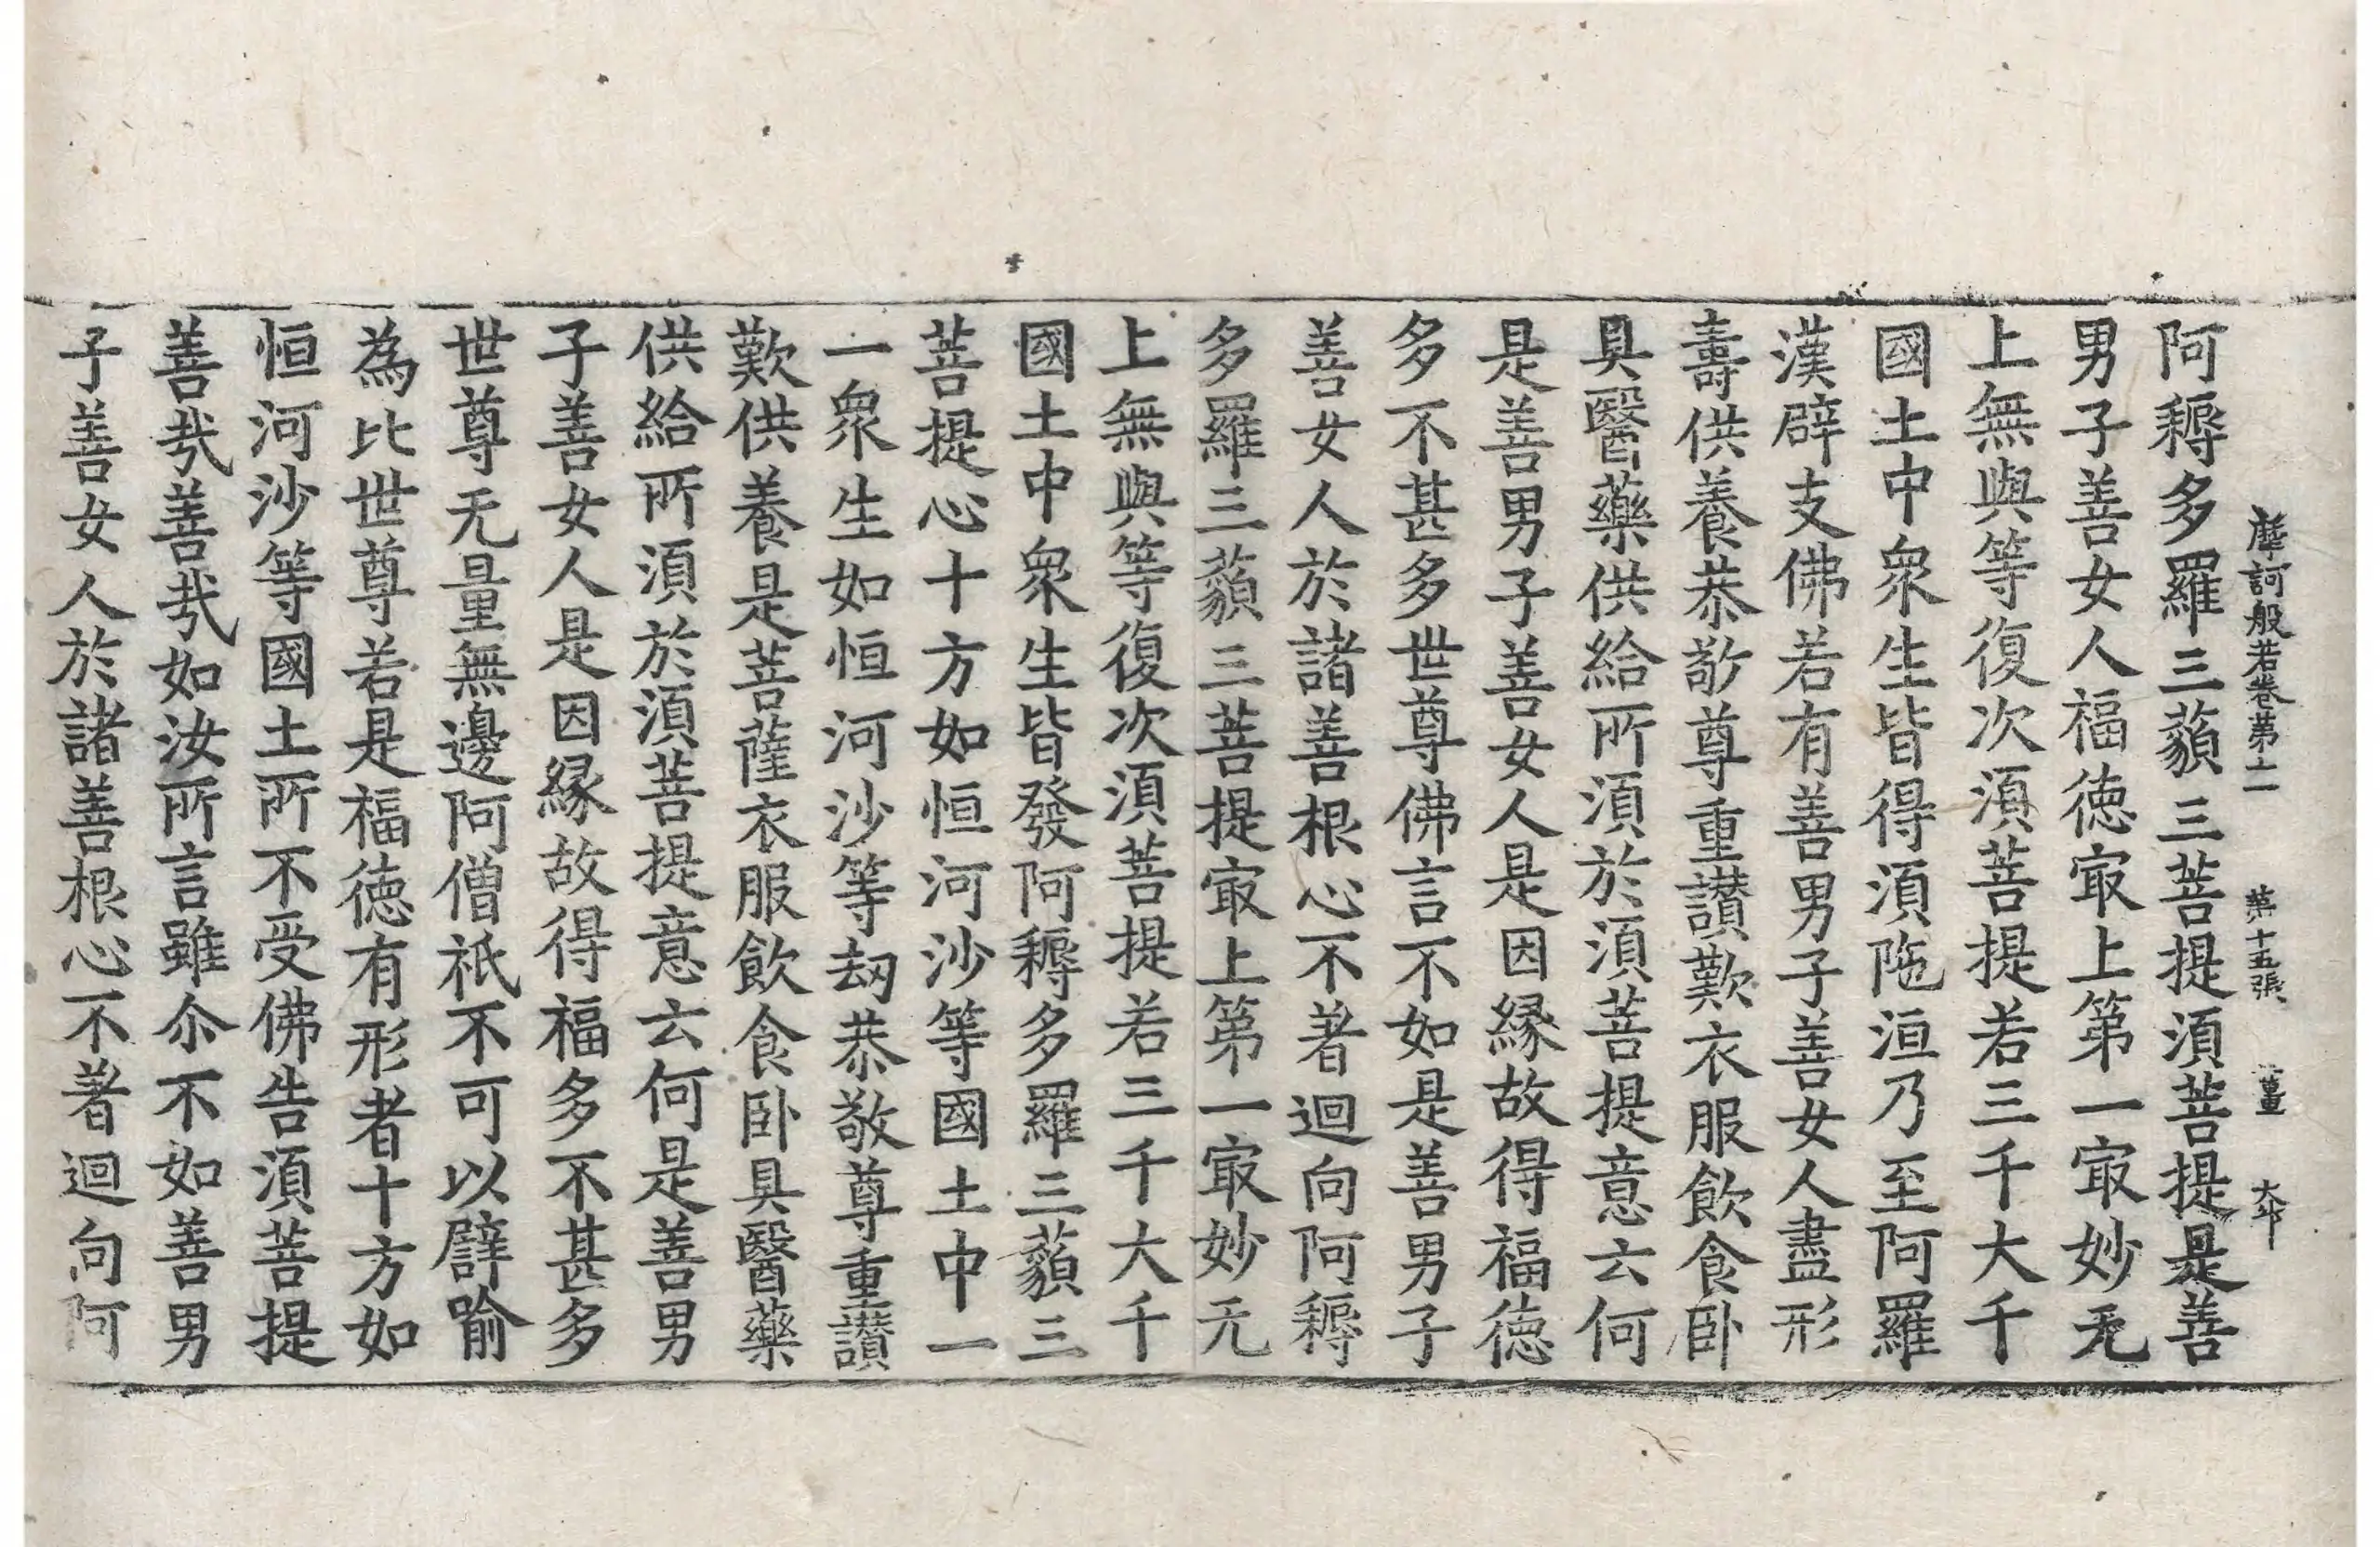 摩訶般若卷第十二 第十五張 薑
阿耨多羅三藐三菩提須菩提是善
男子善女人福德㝡上第一㝡妙无
上無與等復次須菩提若三千大千
國土中衆生皆得須陁洹乃至阿羅
漢辟支佛若有善男子善女人盡形
壽供養恭敬尊重讃歎衣服飲食卧
具醫藥供給所須於須菩提意云何
是善男子善女人是因緣故得福德
多不甚多世尊佛言不如是善男子
善女人於諸善根心不著迴向阿耨
多羅三藐三菩提㝡上第一㝡妙无
上無與等復次須菩提若三千大千
國土中衆生皆發阿耨多羅三藐三
菩提心十方如恒河沙等國土中一
一衆生如恒河沙等劫恭敬尊重讃
歎供養是菩薩衣服飲食卧具醫藥
供給所須於須菩提意云何是善男
子善女人是因緣故得福多不甚多
世尊无量無邊阿僧祇不可以譬喻
為比世尊若是福德有形者十方如
恒河沙等國土所不受佛告須菩提
善㢤善㢤如汝所言雖尒不如善男
子善女人於諸善根心不著迴向阿